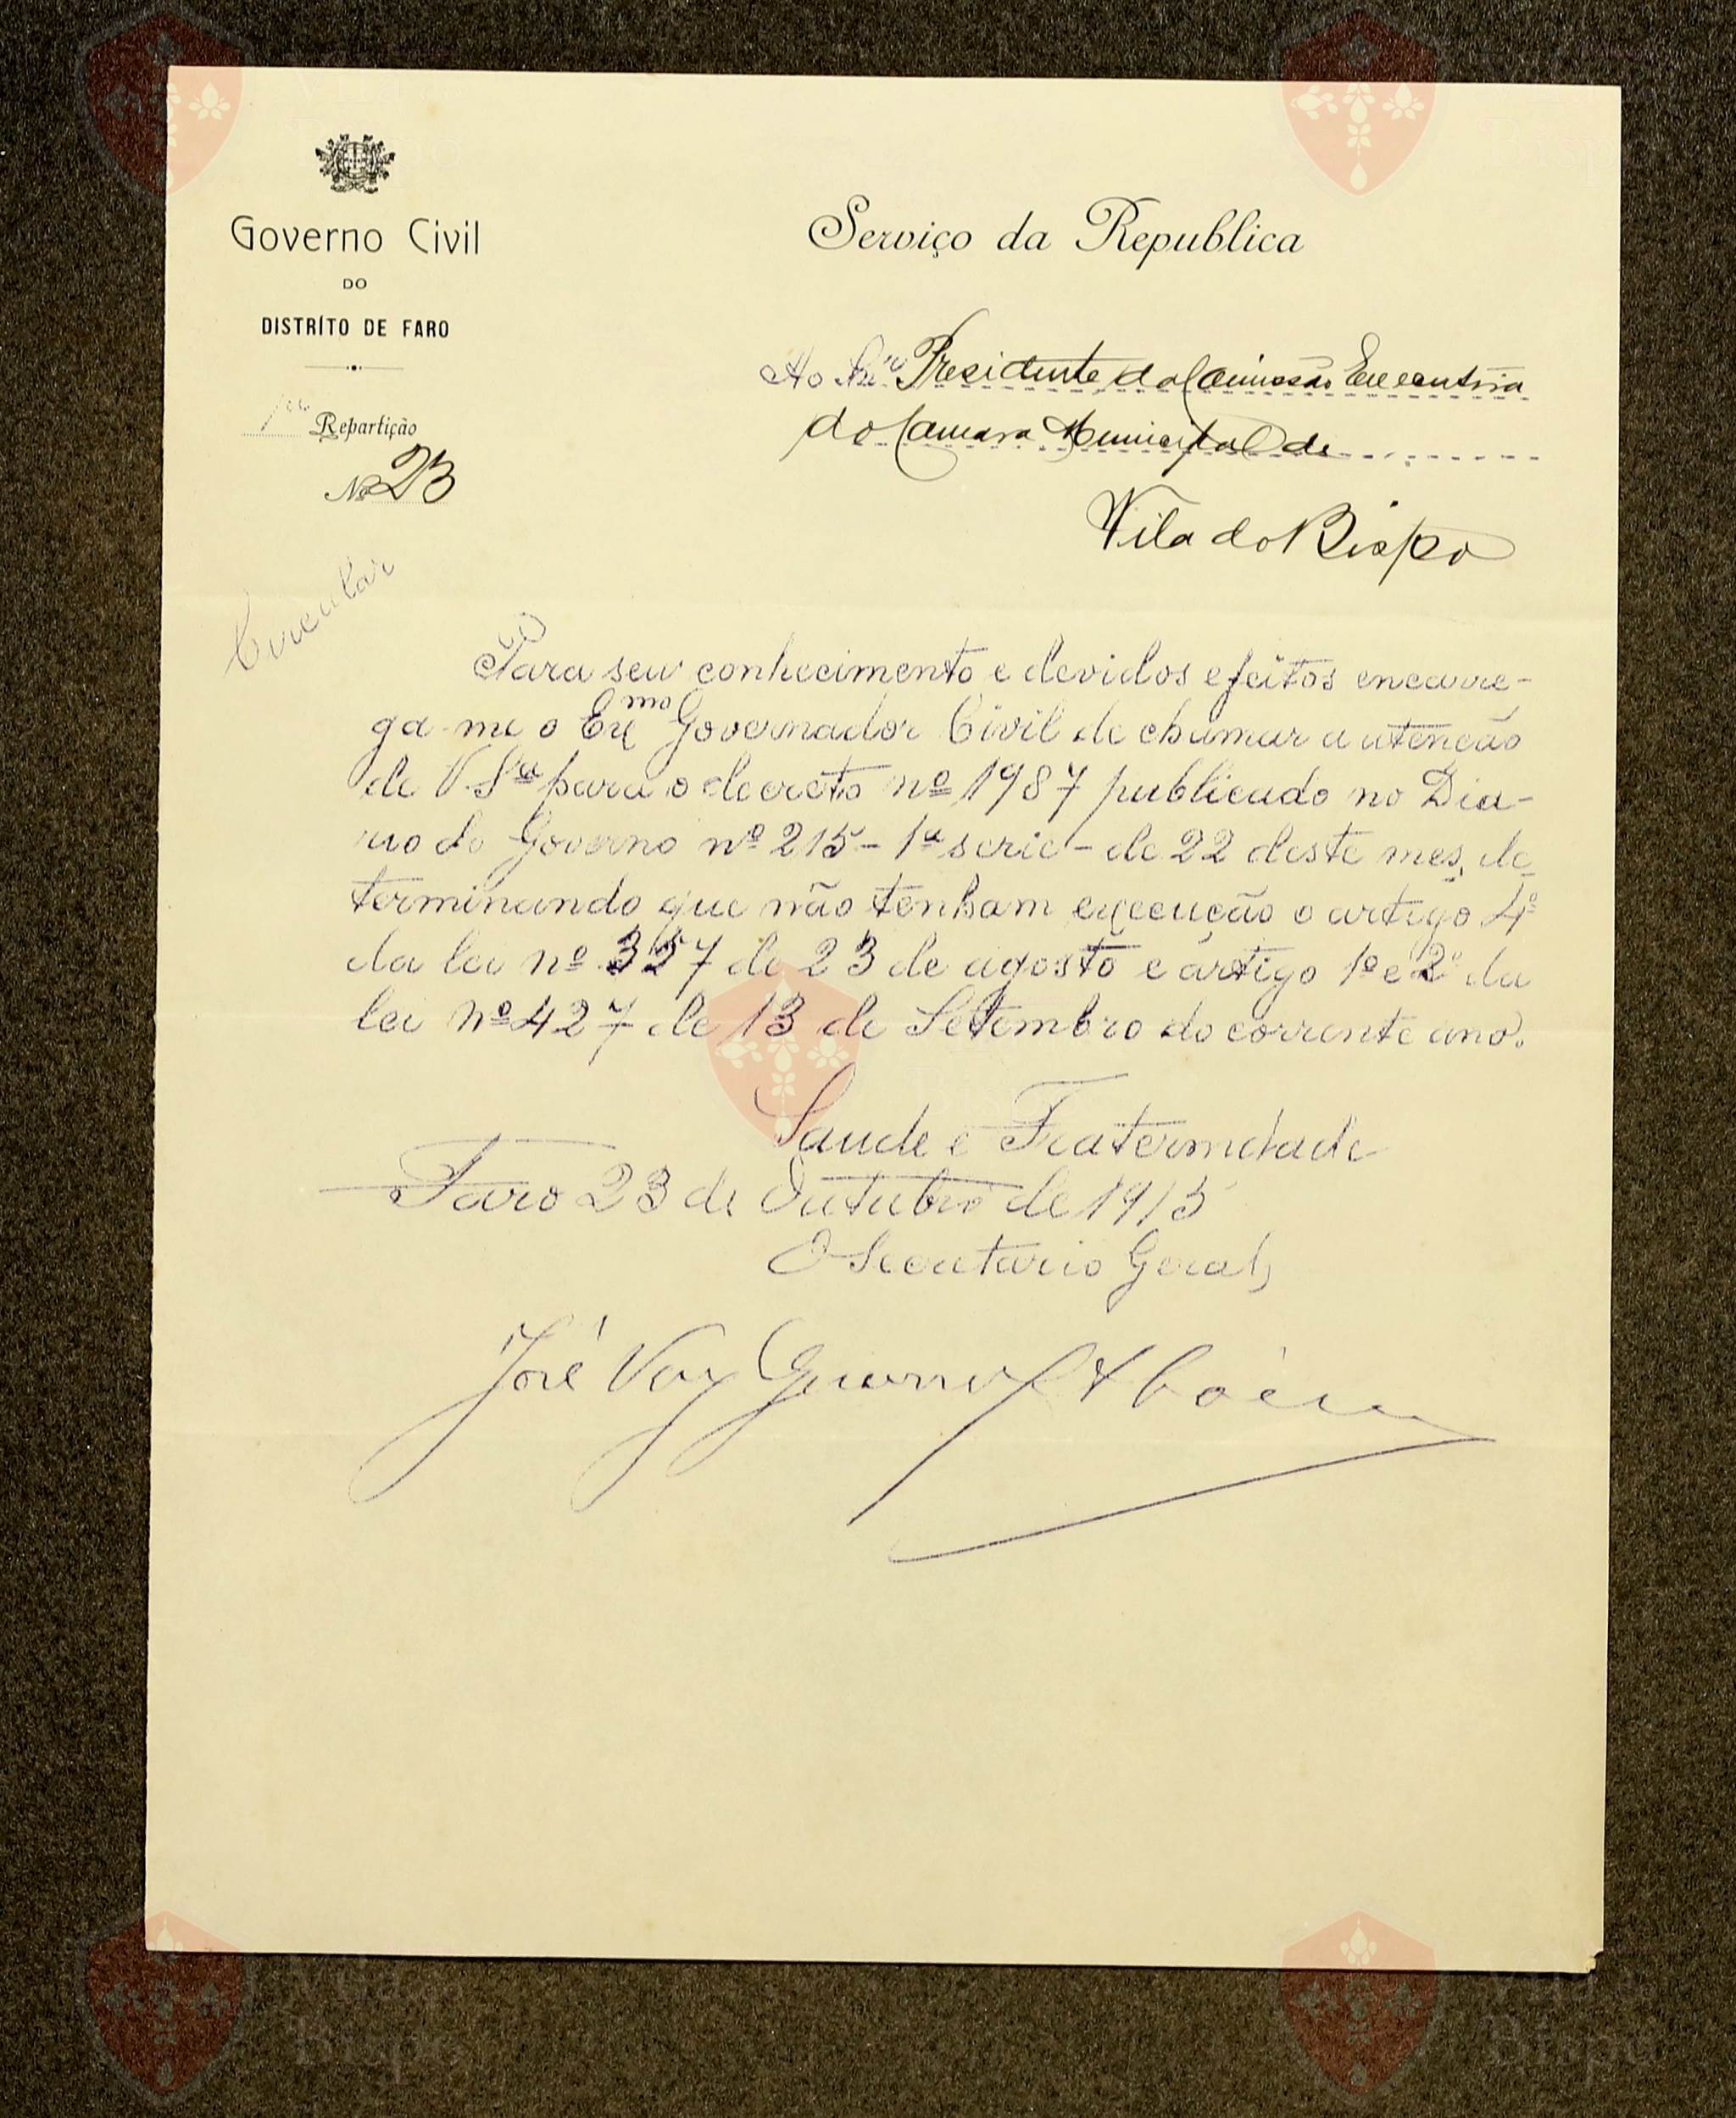 Governo Civil
DO
DISTRÍTO DE FARO
1ª Repartição
Nº 23
Circular
Serviço da Republica
Ao Snr. Presidente da Comissão Executiva
da Camara Municipal de
Vila do Bispo
Para seu conhecimento e devidos efeitos encarre-
ga-me o Exmo Governador Civil de chamar a atenção
de V. Sª para o decreto nº 1987 publicado no Dia-
rio do Governo nº 215 - 1ª serie - de 22 deste mes, de
terminando que não tenham execução o artigo 4º
da lei nº 357 de 23 de agosto e artigo 1º e 2º da
lei nº 427 de 13 de Setembro do corrente ano.
Saude e Fraternidade
Faro 23 de Outubro de 1915
O Secretario Geral,
José Vaz
Vila do
Bispo